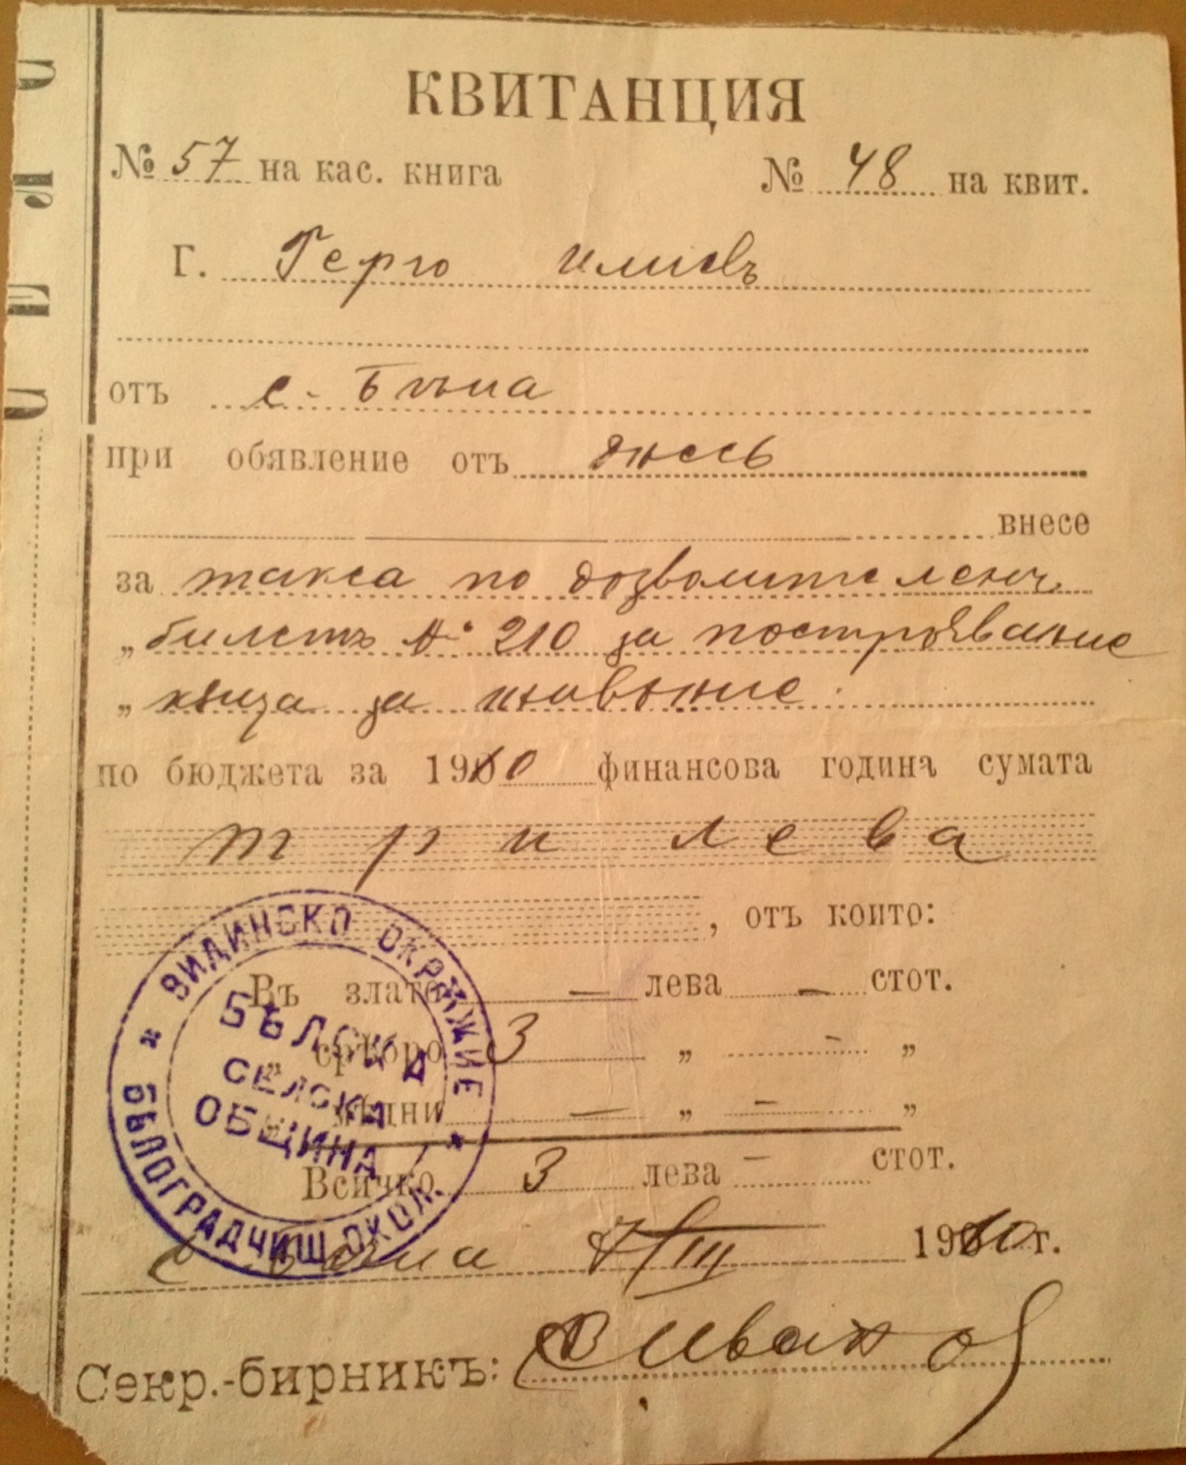 СЕЛС
КВИТАНЦИЯ
№ 57 на кас. книга № 48 на квит.
Г. Герго Илиевъ
отъ с. Бѣла
при обявление отъ днесь
внесе
за такса по дозволителенъ
„ билетъ № 210 за построяване
„ кѫща за живѣние.
по бюджета за 1910 финансова година сумата
три лева
, отъ които:
Въ злато — лева — стот.
„ сребро 3 „ - „
„ мѣдни — „ — „
Всичко 3 лева — стот.
с. Бѣла 7/III 1910 г.
Секр.-бирникъ: В Иванов
ВИДИНСКО ОКРѪЖИЕ
БѢЛОГРАДЧИШ. ОКОЛ.
БѢЛСКА
СЕЛСКА
ОБЩИНА